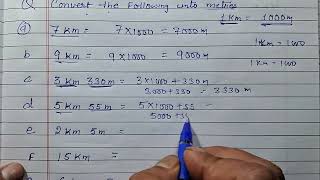 Q Convert the following into metres
1 Km = 1000m
(a) 7 Km = 7×1000 = 7000m
1 Km = 1000
b 9 Km = 9×1000 = 9000m
1 Km = 1000
c 3 Km 330m = 3×1000+330m
3000+330 = 3330m
d 5 Km 55m = 5×1000+55 =
5000+
e 2 Km 5m =
F 15 Km =